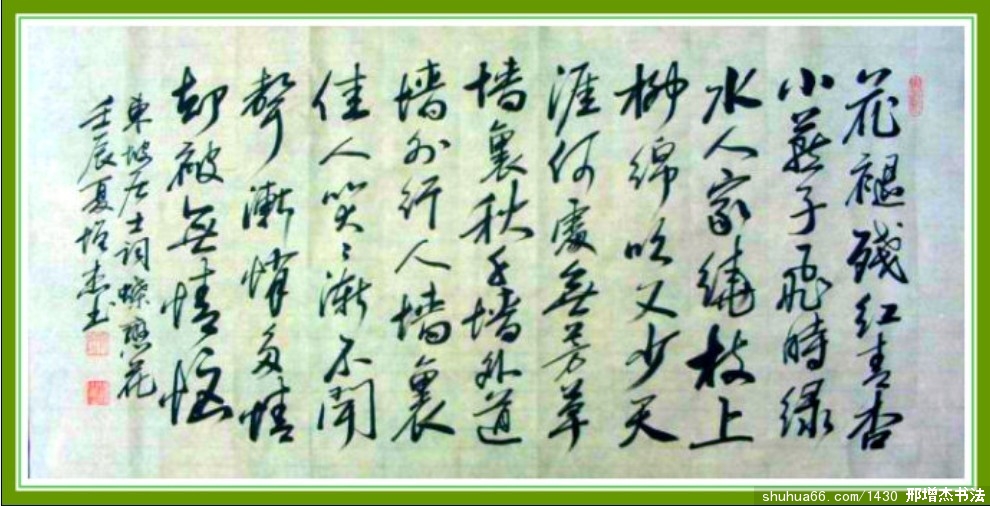 花褪殘红青杏
小燕子飛時绿
水人家繞枝上
柳綿吹又少天
涯何處無芳草
墙裏秋千墙外道
墙外行人墙裏
佳人笑〻漸不聞
聲漸悄多情
却被無情惱
東坡居士詞蝶戀花
壬辰夏增杰书
shuhua66.com/1430 邢增杰书法